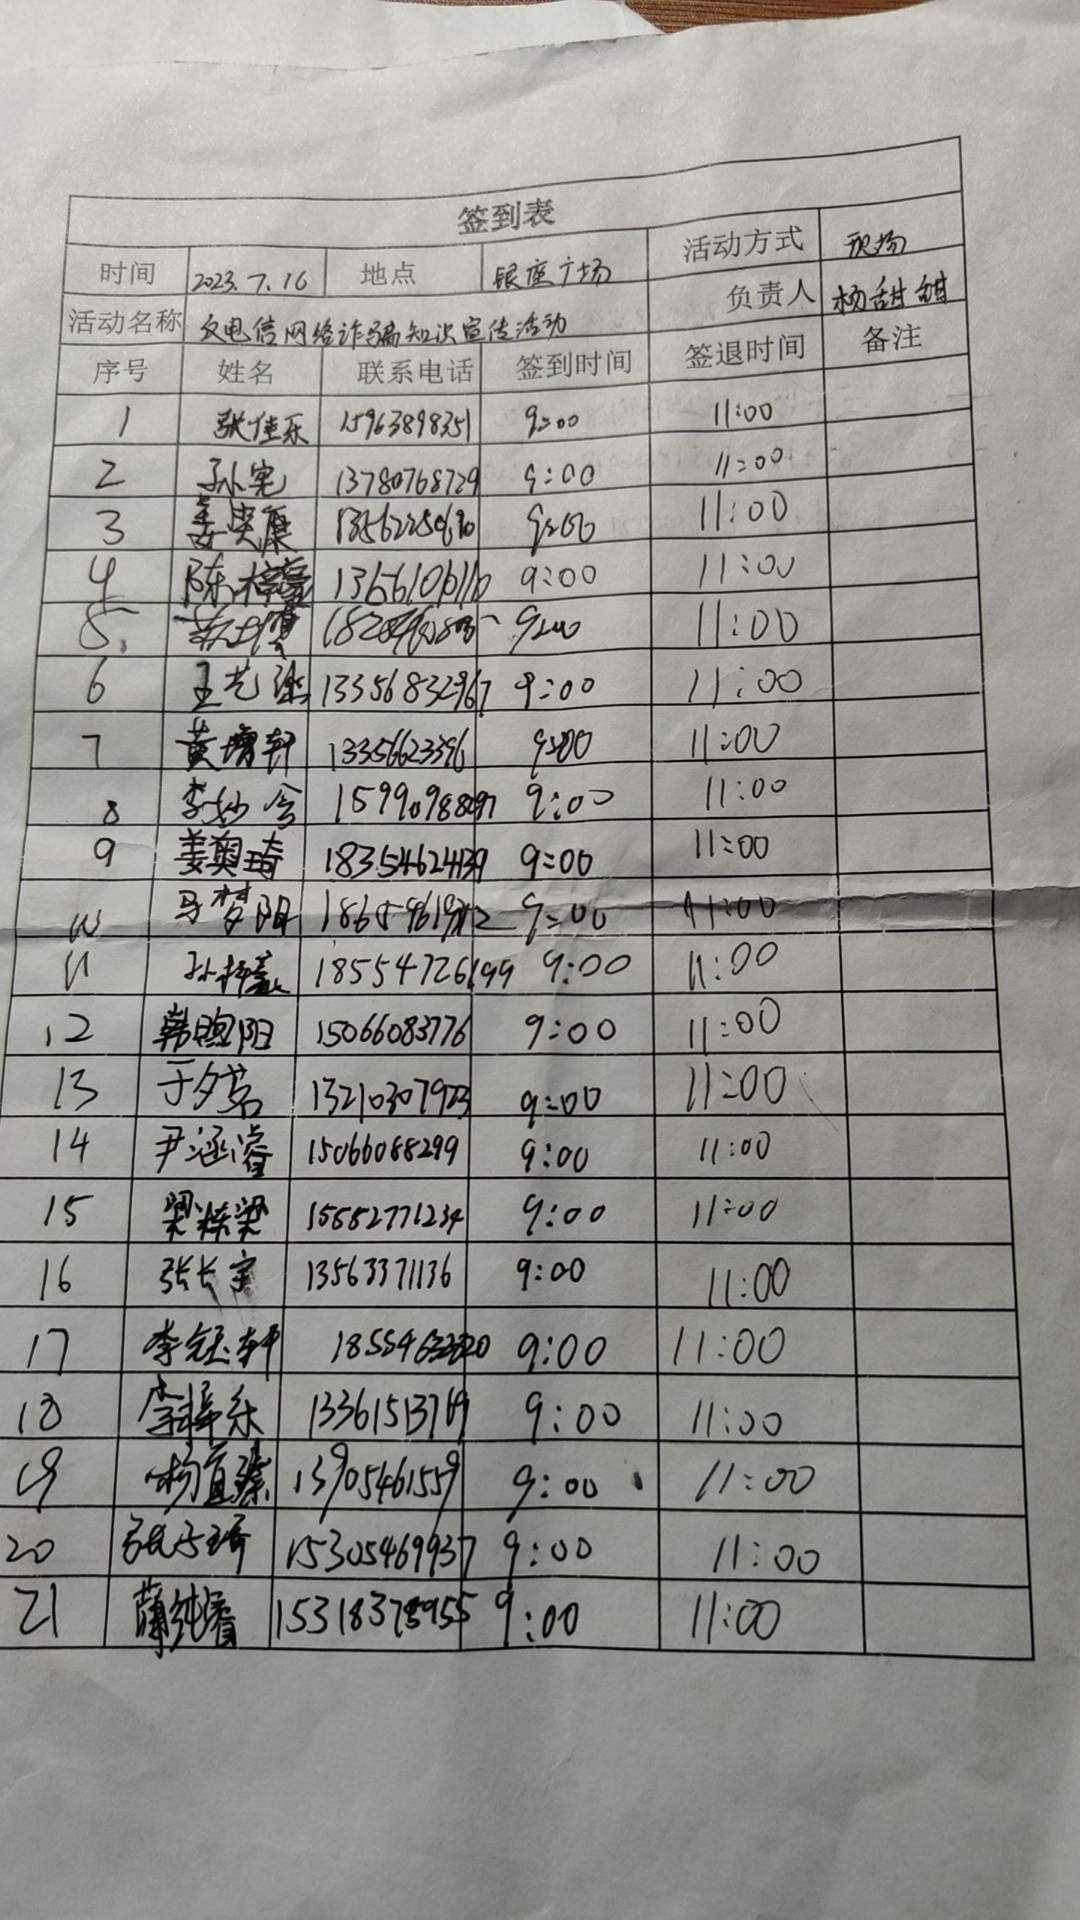 签到表
时间 2023.7.16 地点 银座广场 活动方式 现场
活动名称 反电信网络诈骗知识宣传活动 负责人 杨甜甜
序号 姓名 联系电话 签到时间 签退时间 备注
1 张佳乐 15963898351 9:00 11:00
2 孙宪 13780768729 9:00 11:00
3 姜奕康 9:00 11:00
4 陈梓豪 9:00 11:00
5 9:00 11:00
6 王艺 13356832967 9:00 11:00
7 黄靖轩 13356623396 9:00 11:00
8 李妙含 9:00 11:00
9 姜奥琦 18354624139 9:00 11:00
10 马梦阳 9:00 11:00
11 18554726199 9:00 11:00
12 韩煦阳 15066083776 9:00 11:00
13 于夕茗 13210307923 9:00 11:00
14 尹涵睿 15066088299 9:00 11:00
15 梁栋梁 15552771234 9:00 11:00
16 张长宇 13563371136 9:00 11:00
17 李钰轩 9:00 11:00
18 李梓乐 13361513769 9:00 11:00
19 杨直臻 13905461559 9:00 11:00
20 15305469937 9:00 11:00
21 薄纯睿 15318378955 9:00 11:00